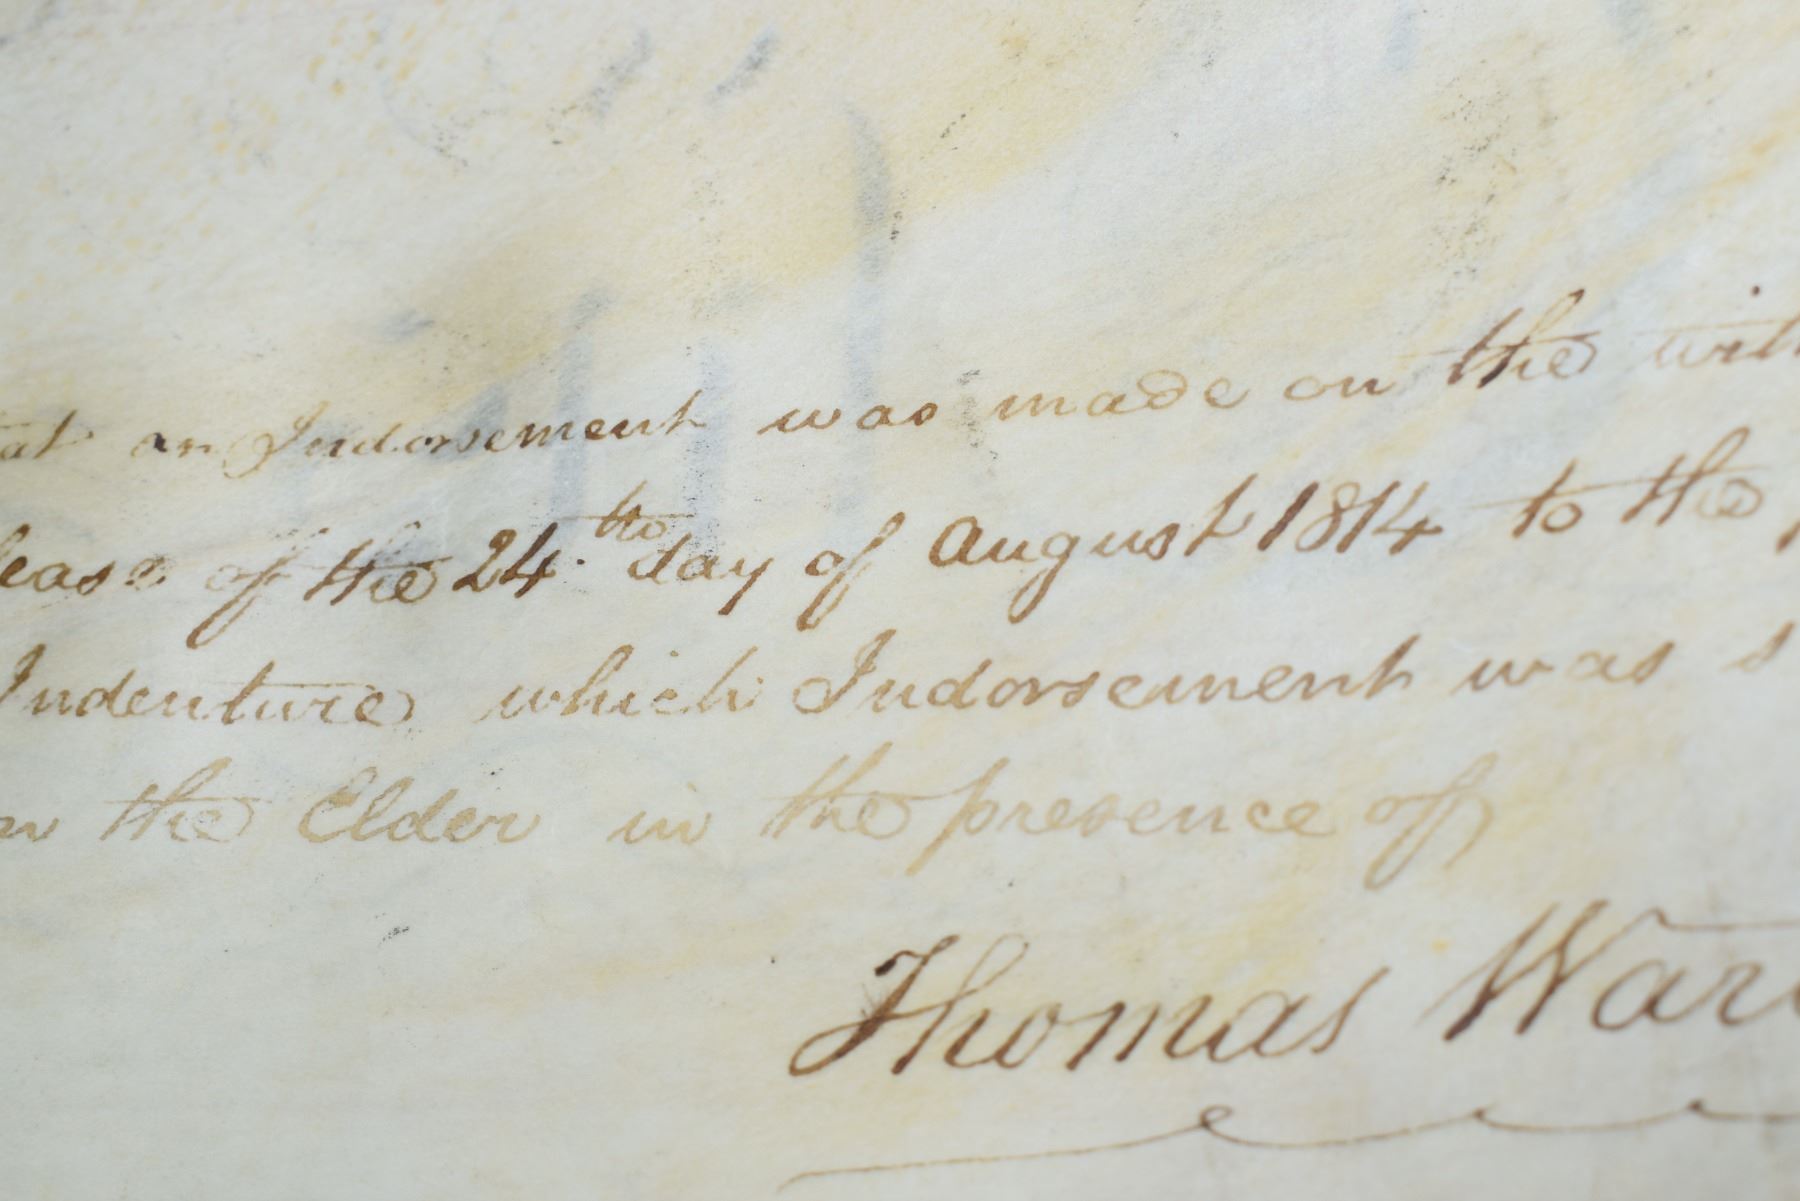 at an Indorsement was made on the with
lease of the 24.th day of August 1814 to the
Indenture which Indorsement was s
n the Elder in the presence of
Thomas War